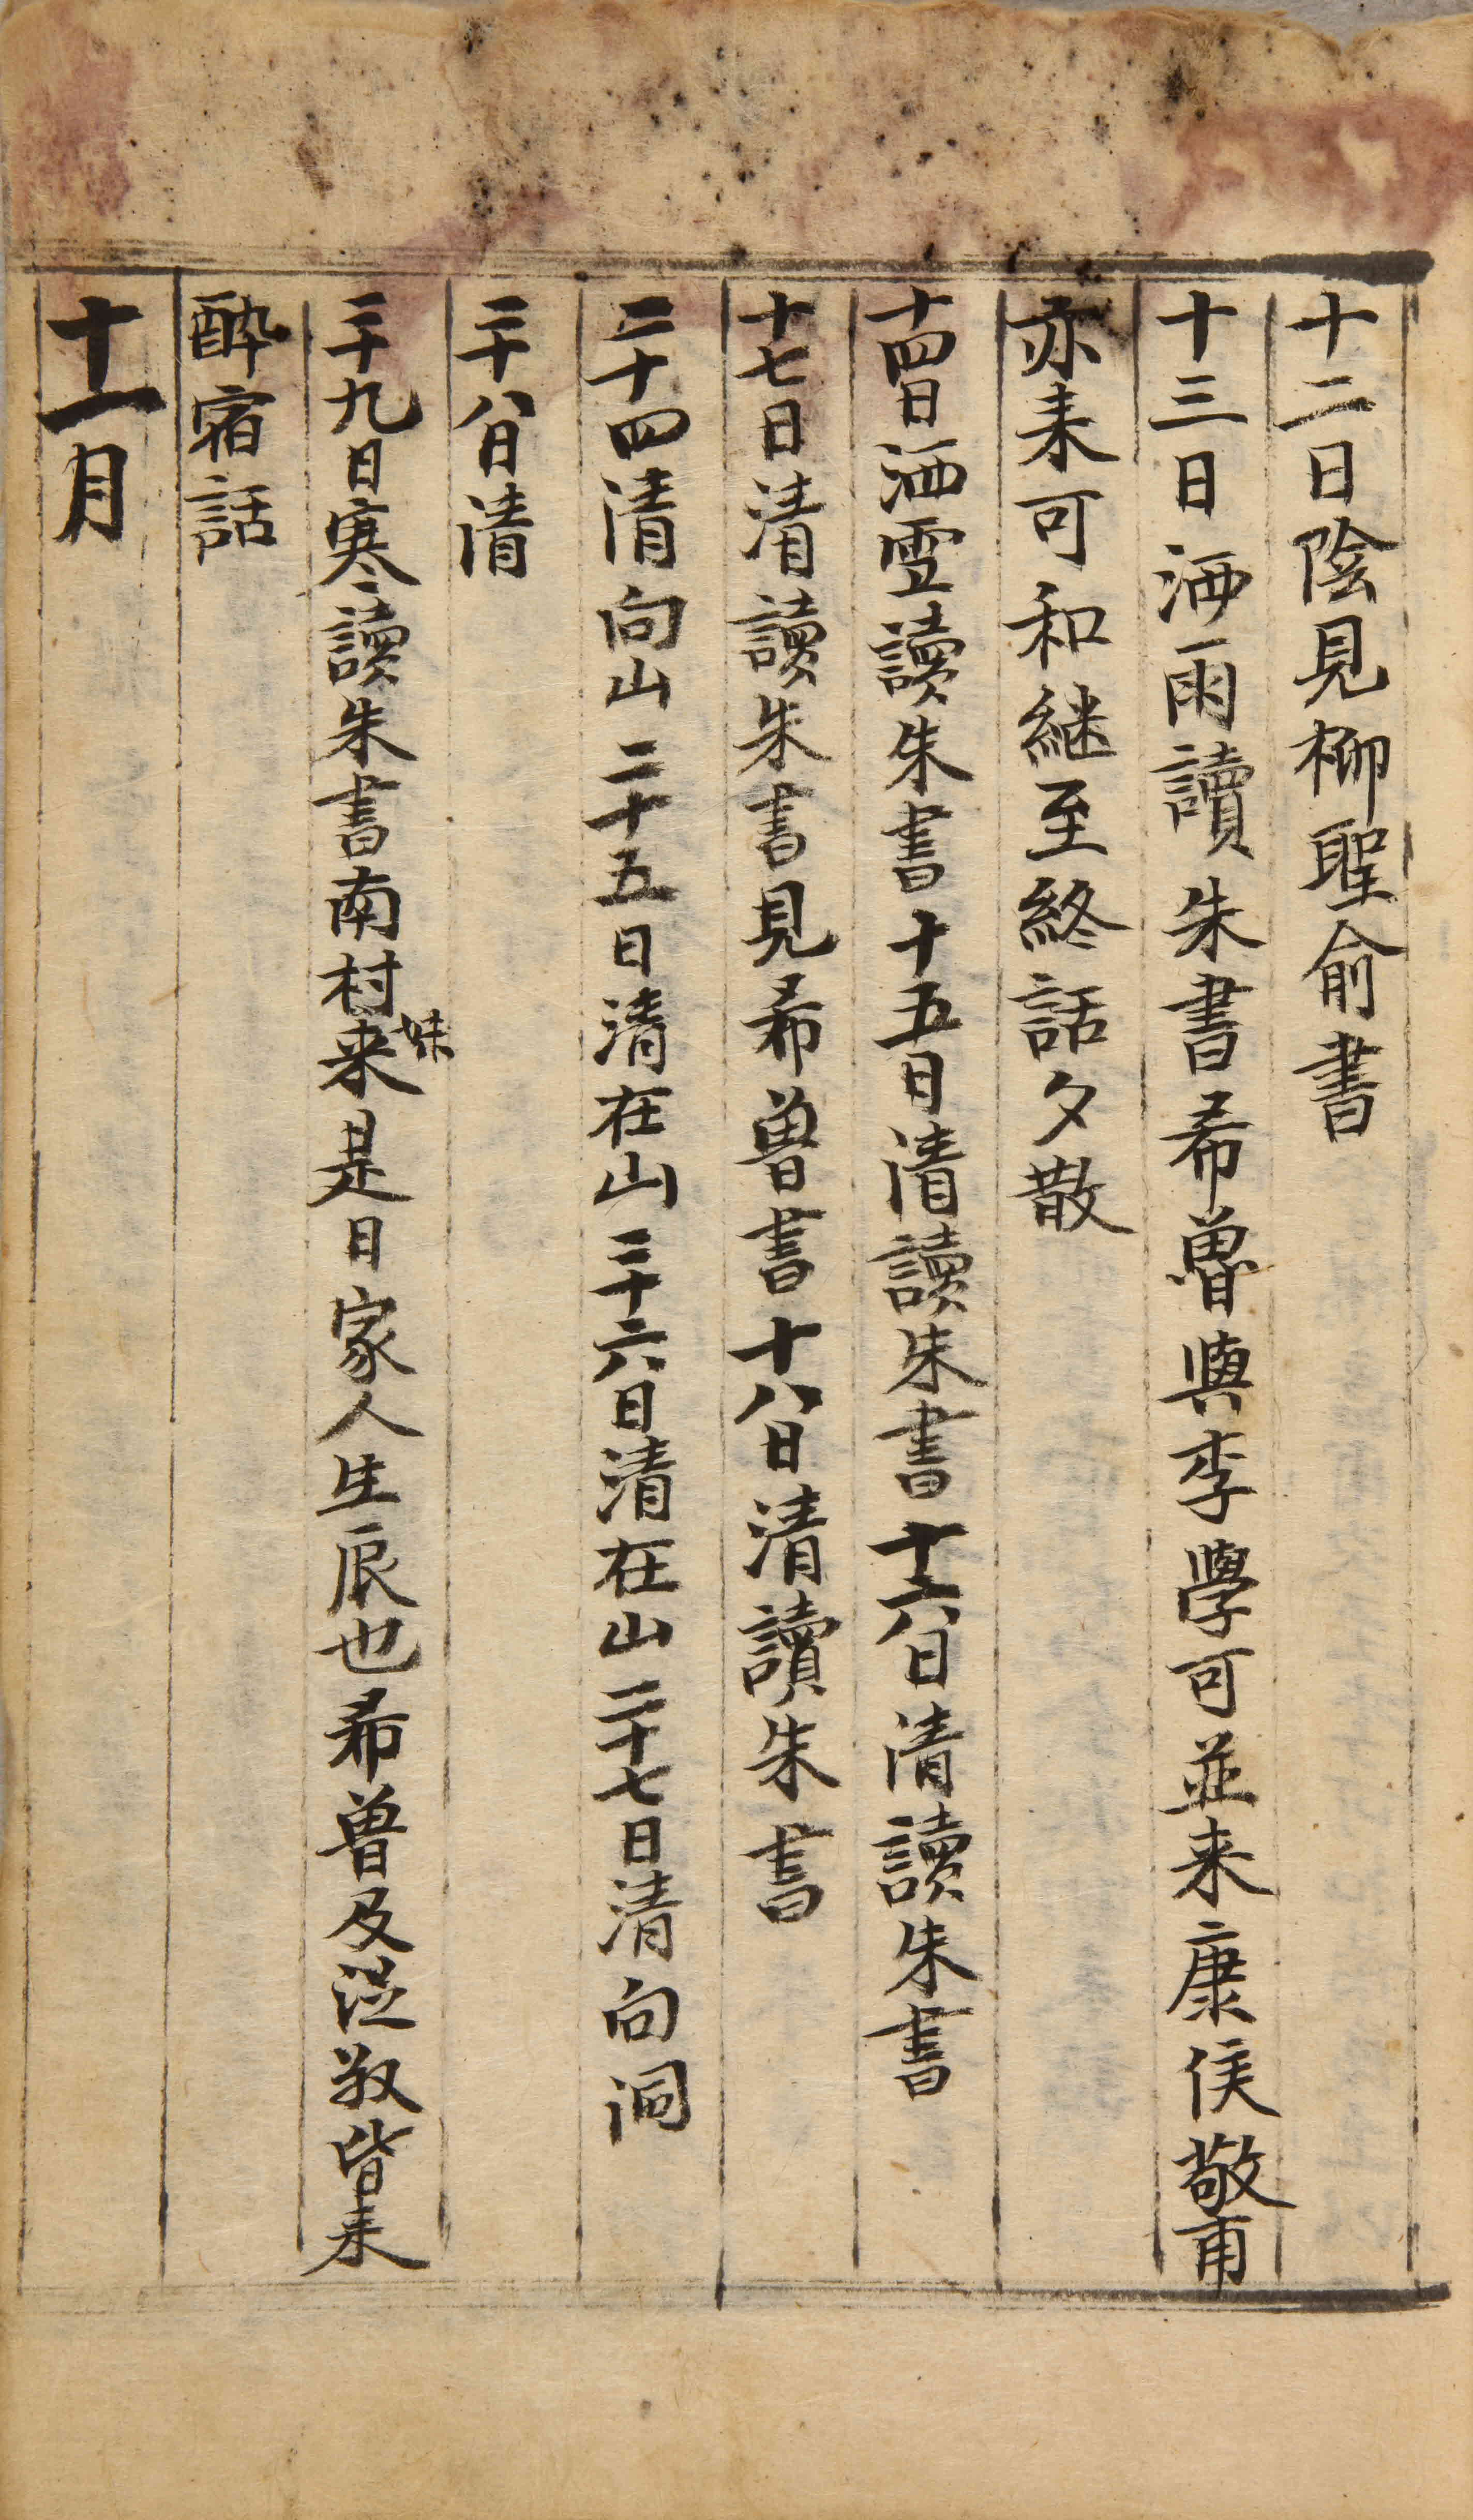 十二日陰見柳聖俞書
十三日洒雨讀朱書希魯與李學可並来康侯敬甫
亦来可和継至終話夕散
十四日洒雪讀朱書十五日清讀朱書十六日清讀朱書
十七日清讀朱書見希曾書十八日清讀朱書
二十四清向山二十五日清在山二十六日清在山二十七日清向洞
二十八日清
二十九日寒讀朱書南村妹来是日家人生辰也希曾及涩叔皆来
酔宿話
十一月